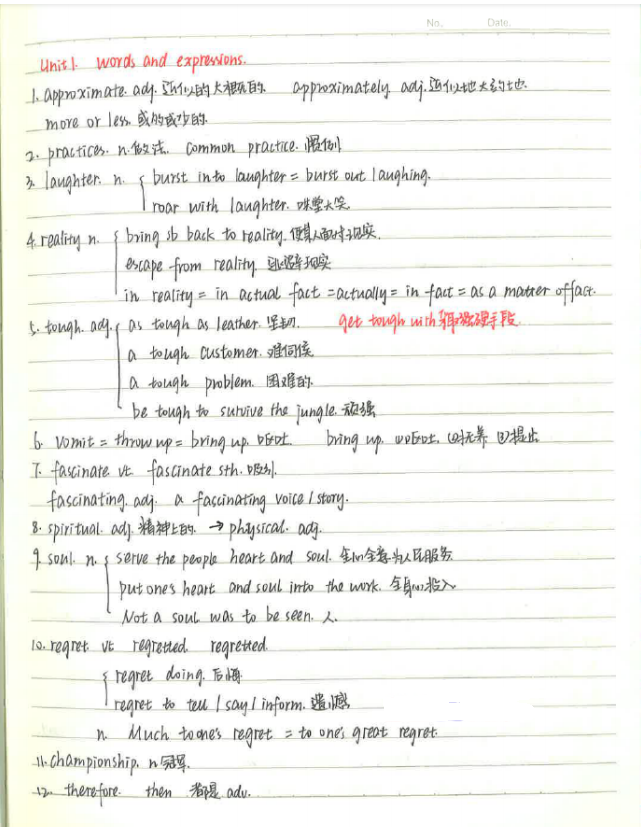 No.        Date.
Unit 1. words and expressions.
1. approximate. adj. 近似的大概的. approximately adj. 近似地大约地.
more or less. 或多或少的.
2. practices. n. 做法. common practice. 惯例
3. laughter. n. burst into laughter = burst out laughing.
roar with laughter. 哄堂大笑
4. reality n. bring sb back to reality. 使某人面对现实.
escape from reality 逃避现实
in reality = in actual fact = actually = in fact = as a matter of fact.
5. tough. adj. as tough as leather. 坚韧. get tough with 采取强硬手段.
a tough customer. 难伺候
a tough problem. 困难的.
be tough to survive the jungle. 顽强
6. vomit = throw up = bring up. 呕吐. bring up. ①呕吐. ②抚养 ③提出
7. fascinate vt fascinate sth. 吸引.
fascinating. adj. a fascinating voice / story.
8. spiritual. adj. 精神上的. → physical. adj.
9. soul. n. serve the people heart and soul. 全心全意为人民服务
put one's heart and soul into the work. 全身心投入
Not a soul was to be seen. 人.
10. regret vt regretted regretted.
regret doing. 后悔
regret to tell / say / inform. 遗憾
n. Much to one's regret = to one's great regret.
11. championship. n 冠军.
12. therefore. then 都是 adv.